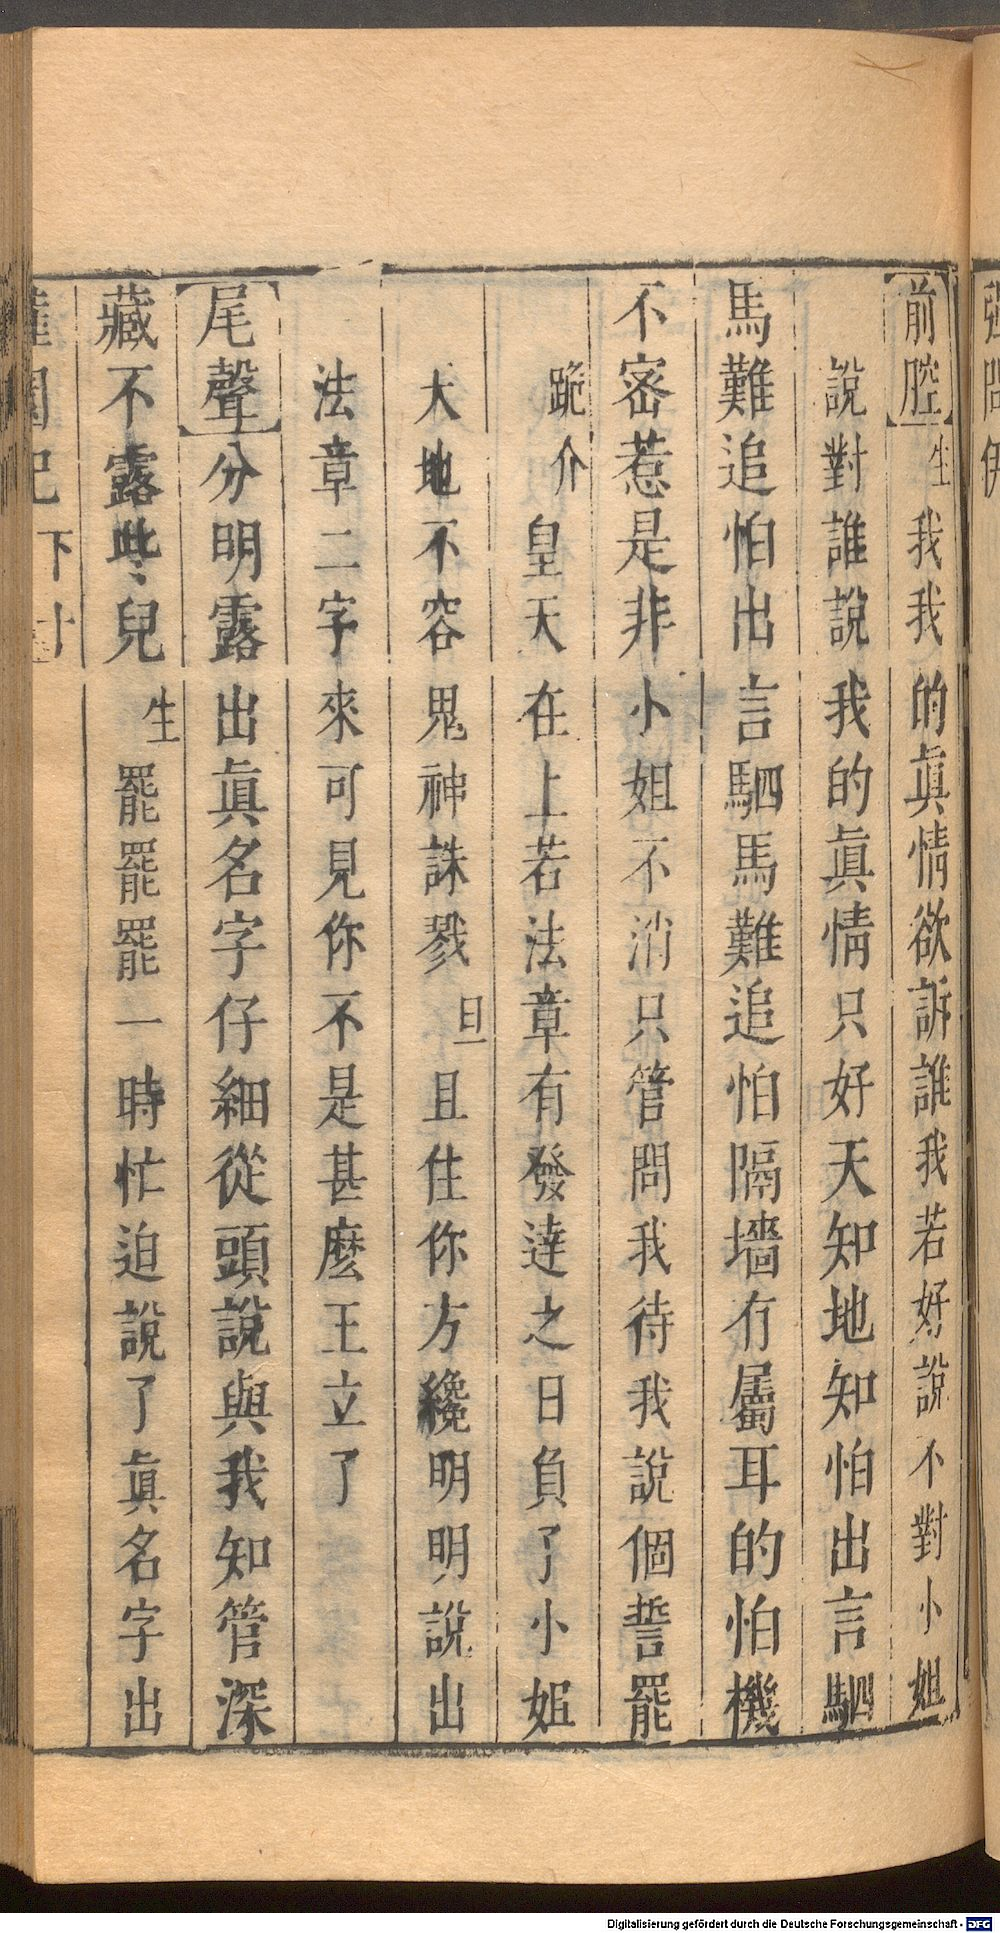 強問伊
前腔 生 我我的眞情欲訴誰我若好說不對小姐
說對誰說我的眞情只好天知地知怕出言駟
馬難追怕出言駟馬難追怕隔墻冇屬耳的怕機
不密惹是非小姐不消只管問我待我說個誓罷
跪介 皇天在上若法章有發達之日負了小姐
大地不容鬼神誅戮 旦 且住你方纔明明說出
法章二字來可見你不是甚麽王立了
尾聲 分明露出眞名字仔細從頭說與我知管深
藏不露些兒 生 罷罷罷一時忙迫說了眞名字出
園記 下
Digitalisierung gefördert durch die Deutsche Forschungsgemeinschaft - DFG